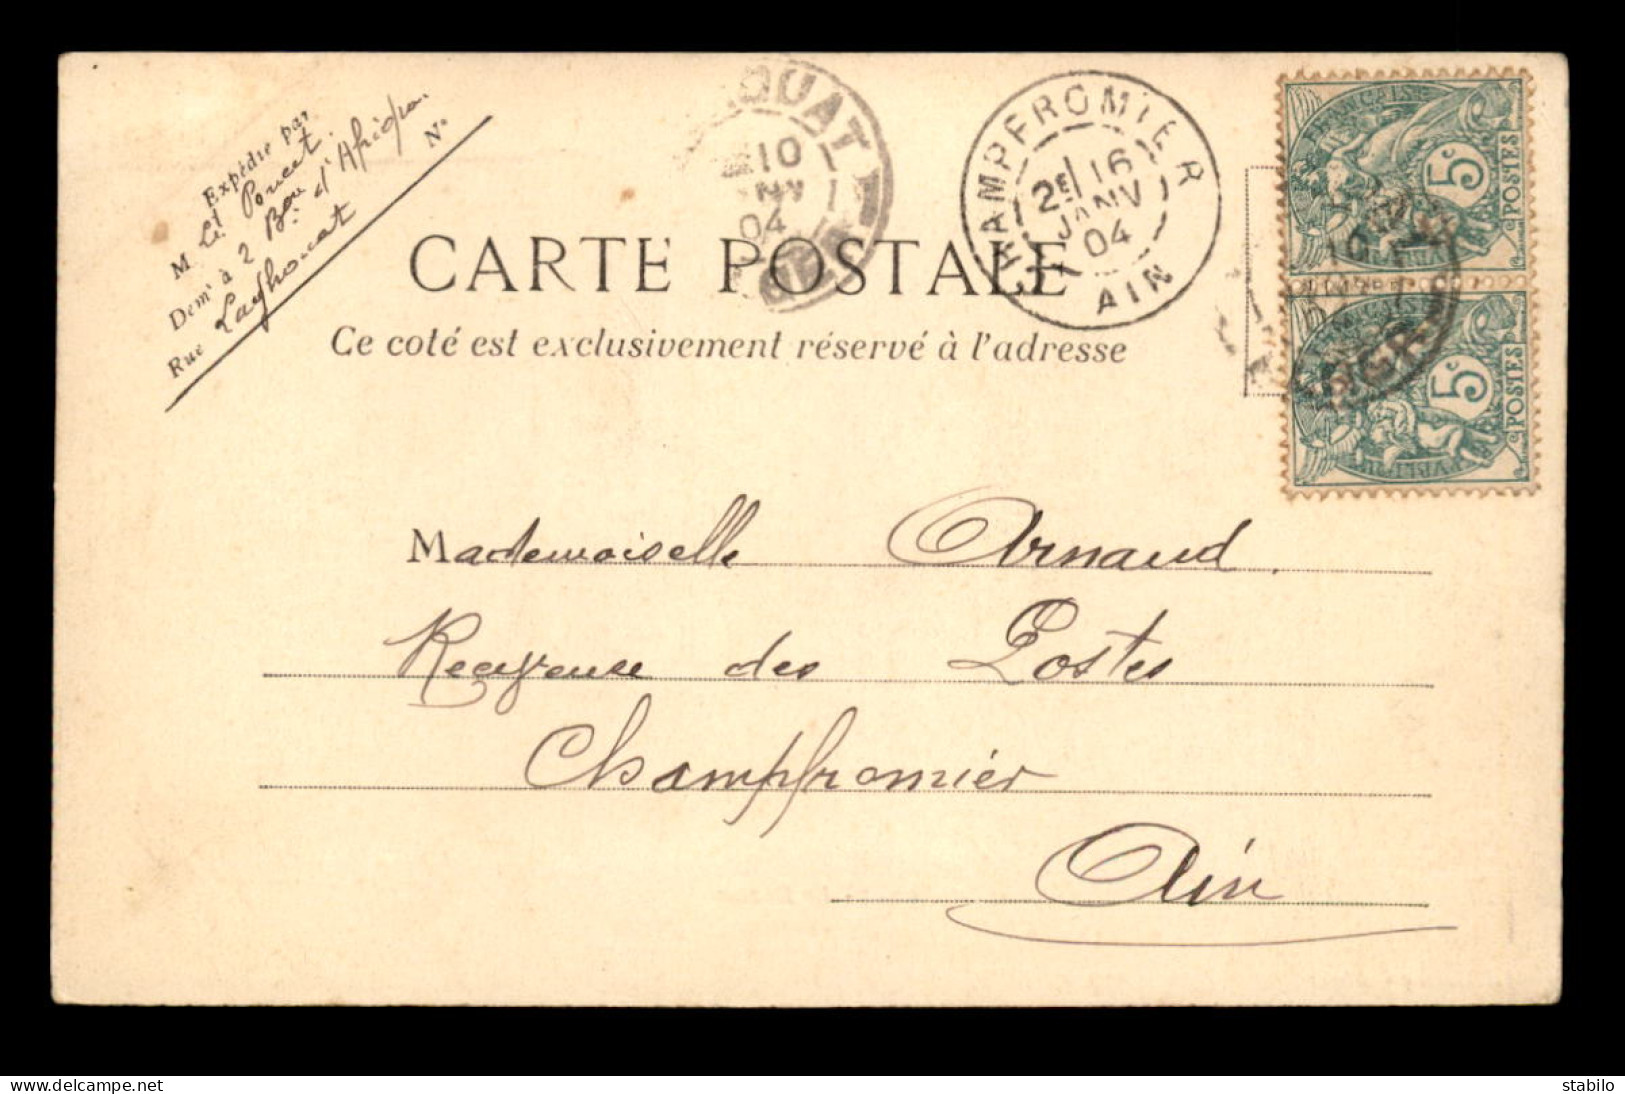 Expédié par
M Lt Poncet
Demt à 2 Bon d'Afrique
Rue Laghouat N°
OUAT
10
04
CHAMPFROMIER
2E 16
JANV
04
AIN
CARTE POSTALE
Ce coté est exclusivement réservé à l'adresse
5c
POSTES
5c
POSTES
Mademoiselle Arnaud
Receveuse des Postes
Champfromier
Ain
www.delcampe.net
stabilo